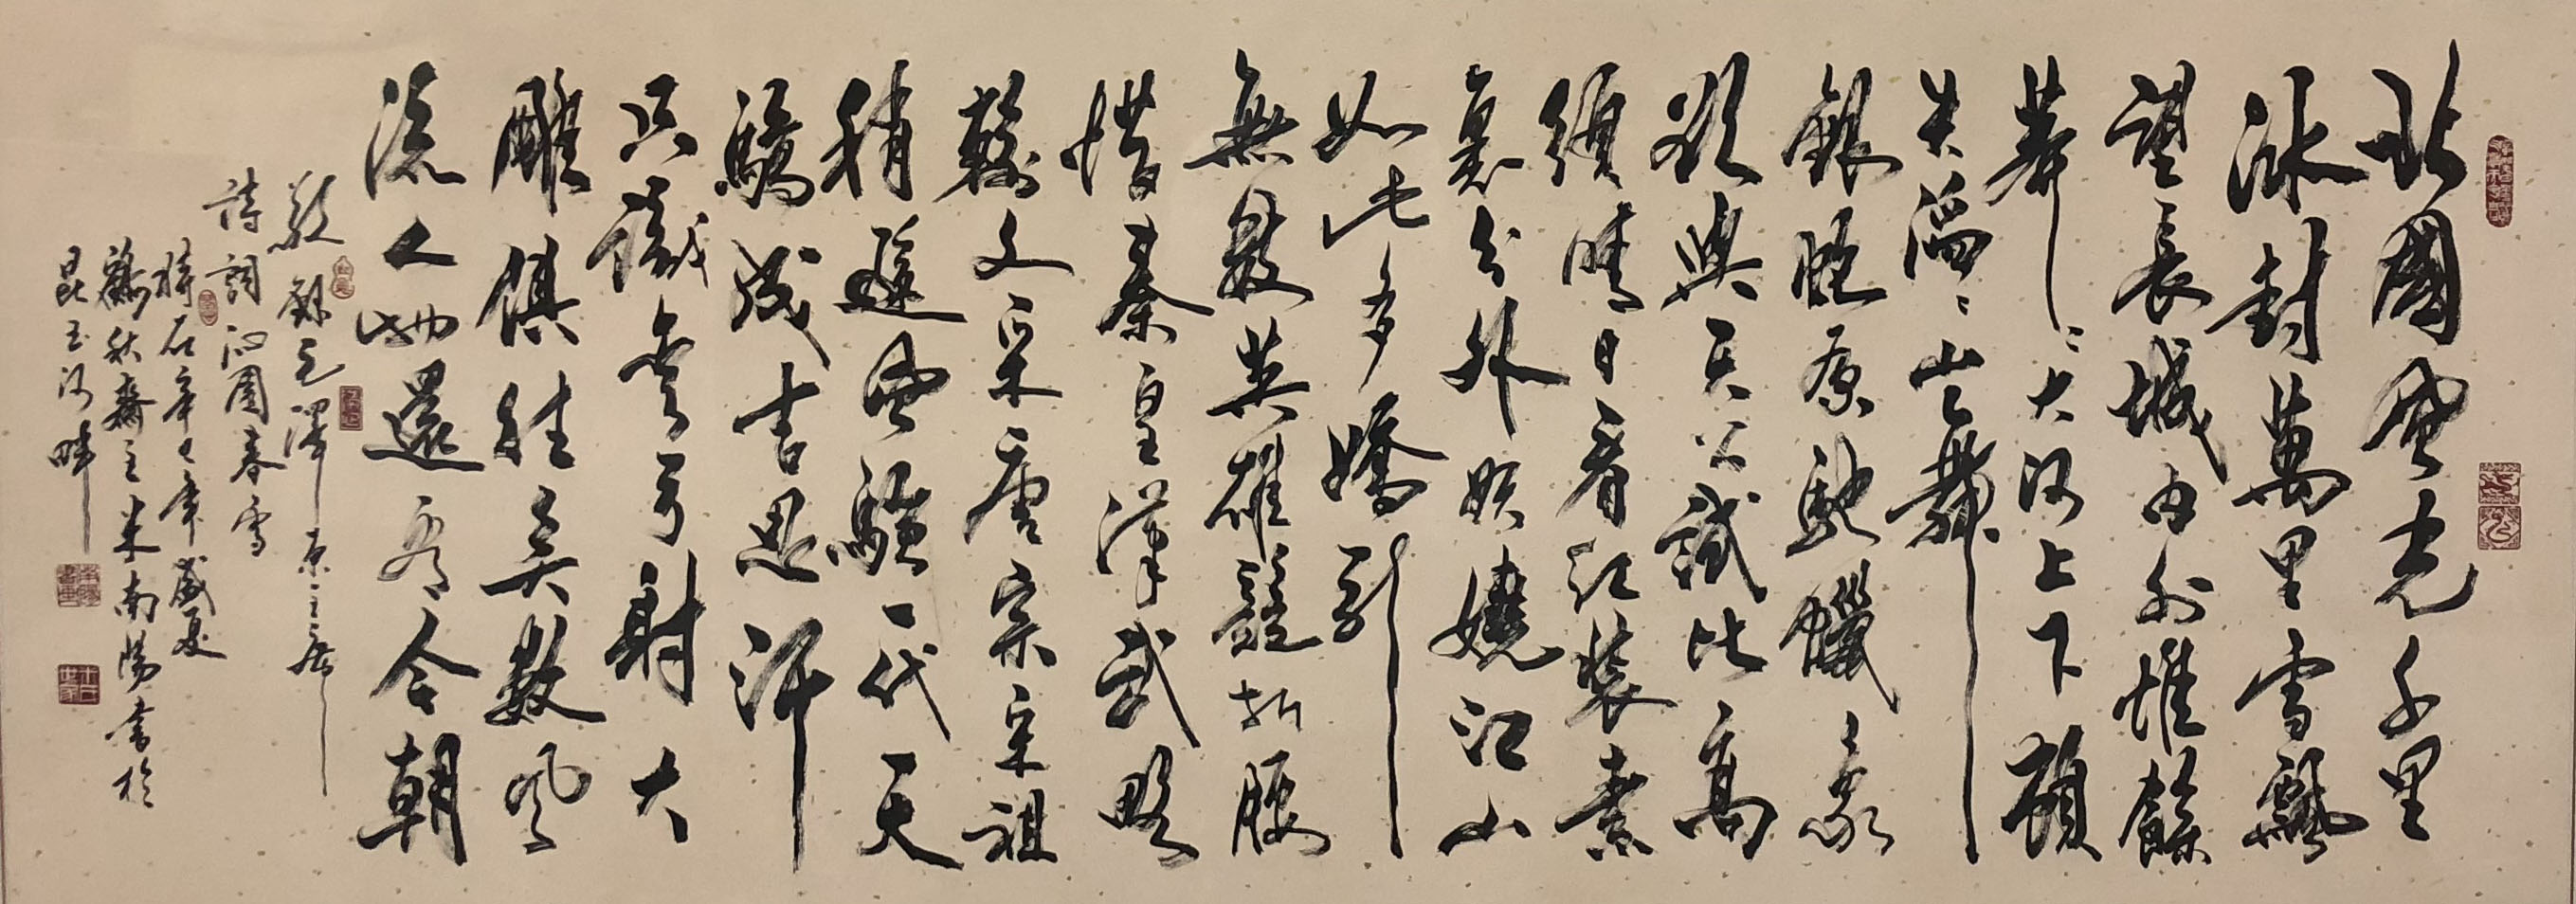 北國風光千里
冰封萬里雪飄
望長城內外惟餘
莽〻大河上下頓
失滔〻山舞
銀蛇原馳蠟象
欲與天公試比高
須晴日看紅裝素
裹分外妖嬈江山
如此多嬌引
無數英雄競折腰
惜秦皇漢武略
輸文采唐宗宋祖
稍遜風騷一代天
驕成吉思汗
只識彎弓射大
雕俱往矣數風
流人物還看今朝
敬錄毛澤東主席
詩詞沁園春雪
時在辛巳年盛夏
鶴秋齋主米南陽書於
昆玉河畔